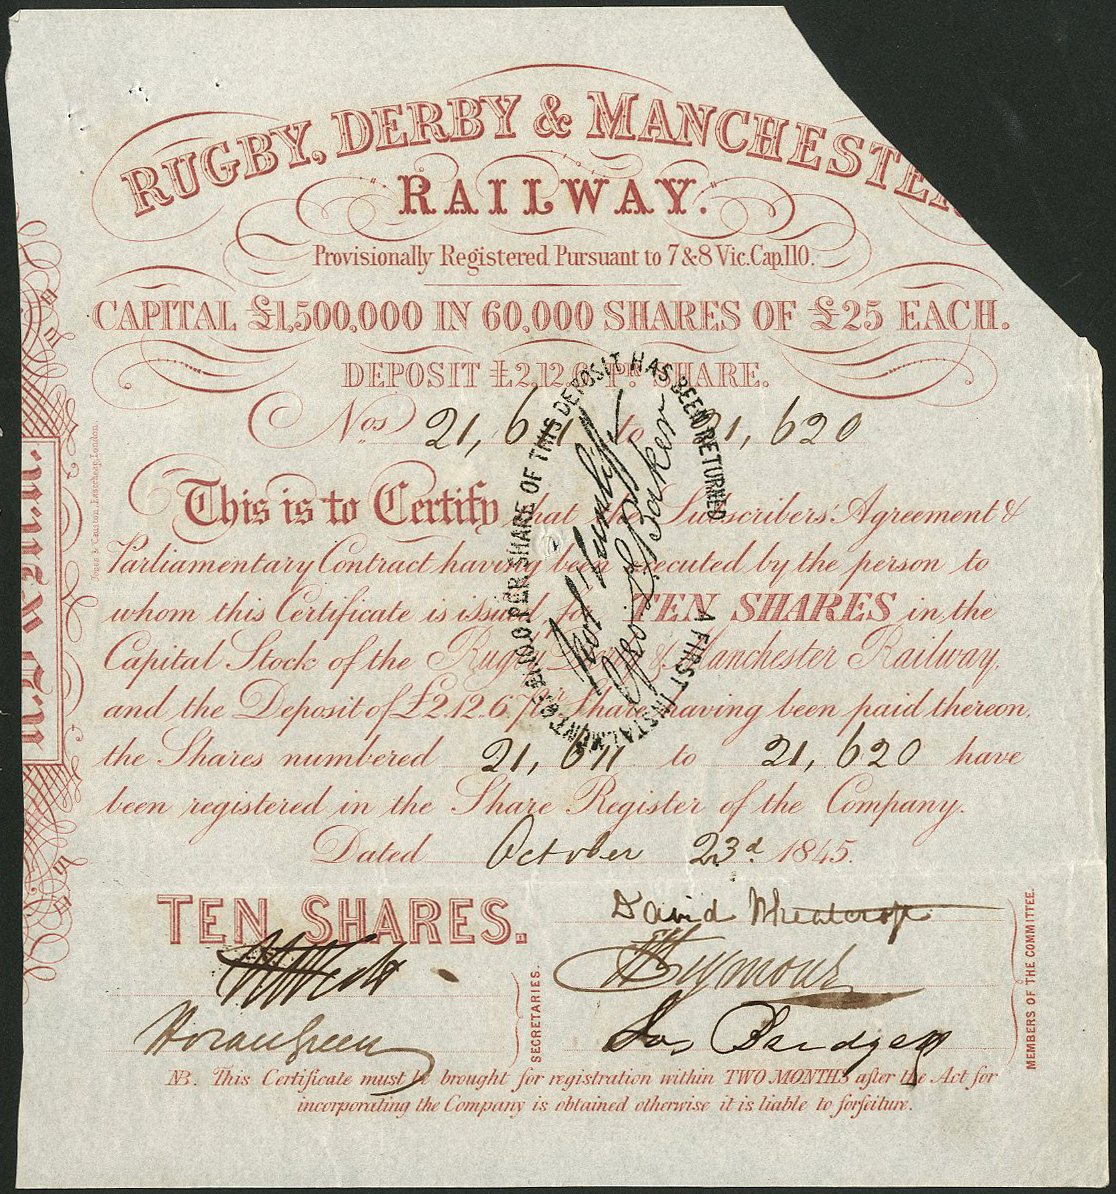 RUGBY, DERBY & MANCHESTER
RAILWAY.
Provisionally Registered Pursuant to 7 & 8 Vic. Cap. 110.
CAPITAL £1,500,000 IN 60,000 SHARES OF £25 EACH.
DEPOSIT £2.12.6 Pr. SHARE.
Nos 21,611 to 21,620
This is to Certify that the Subscribers' Agreement &
Parliamentary Contract having been executed by the person to
whom this Certificate is issued for TEN SHARES in the
Capital Stock of the Rugby Derby & Manchester Railway,
and the Deposit of £2.12.6. per Share having been paid thereon,
the Shares numbered 21,611 to 21,620 have
been registered in the Share Register of the Company.
Dated October 23d 1845.
A FIRST INSTALMENT OF PER SHARE OF THIS DEPOSIT HAS BEEN RETURNED
Geo. Barker
TEN SHARES.
David Wheatcroft
Seymour
Horan Green
Jas
SECRETARIES.
MEMBERS OF THE COMMITTEE.
NB. This Certificate must be brought for registration within TWO MONTHS after the Act for
incorporating the Company is obtained otherwise it is liable to forfeiture.
London.